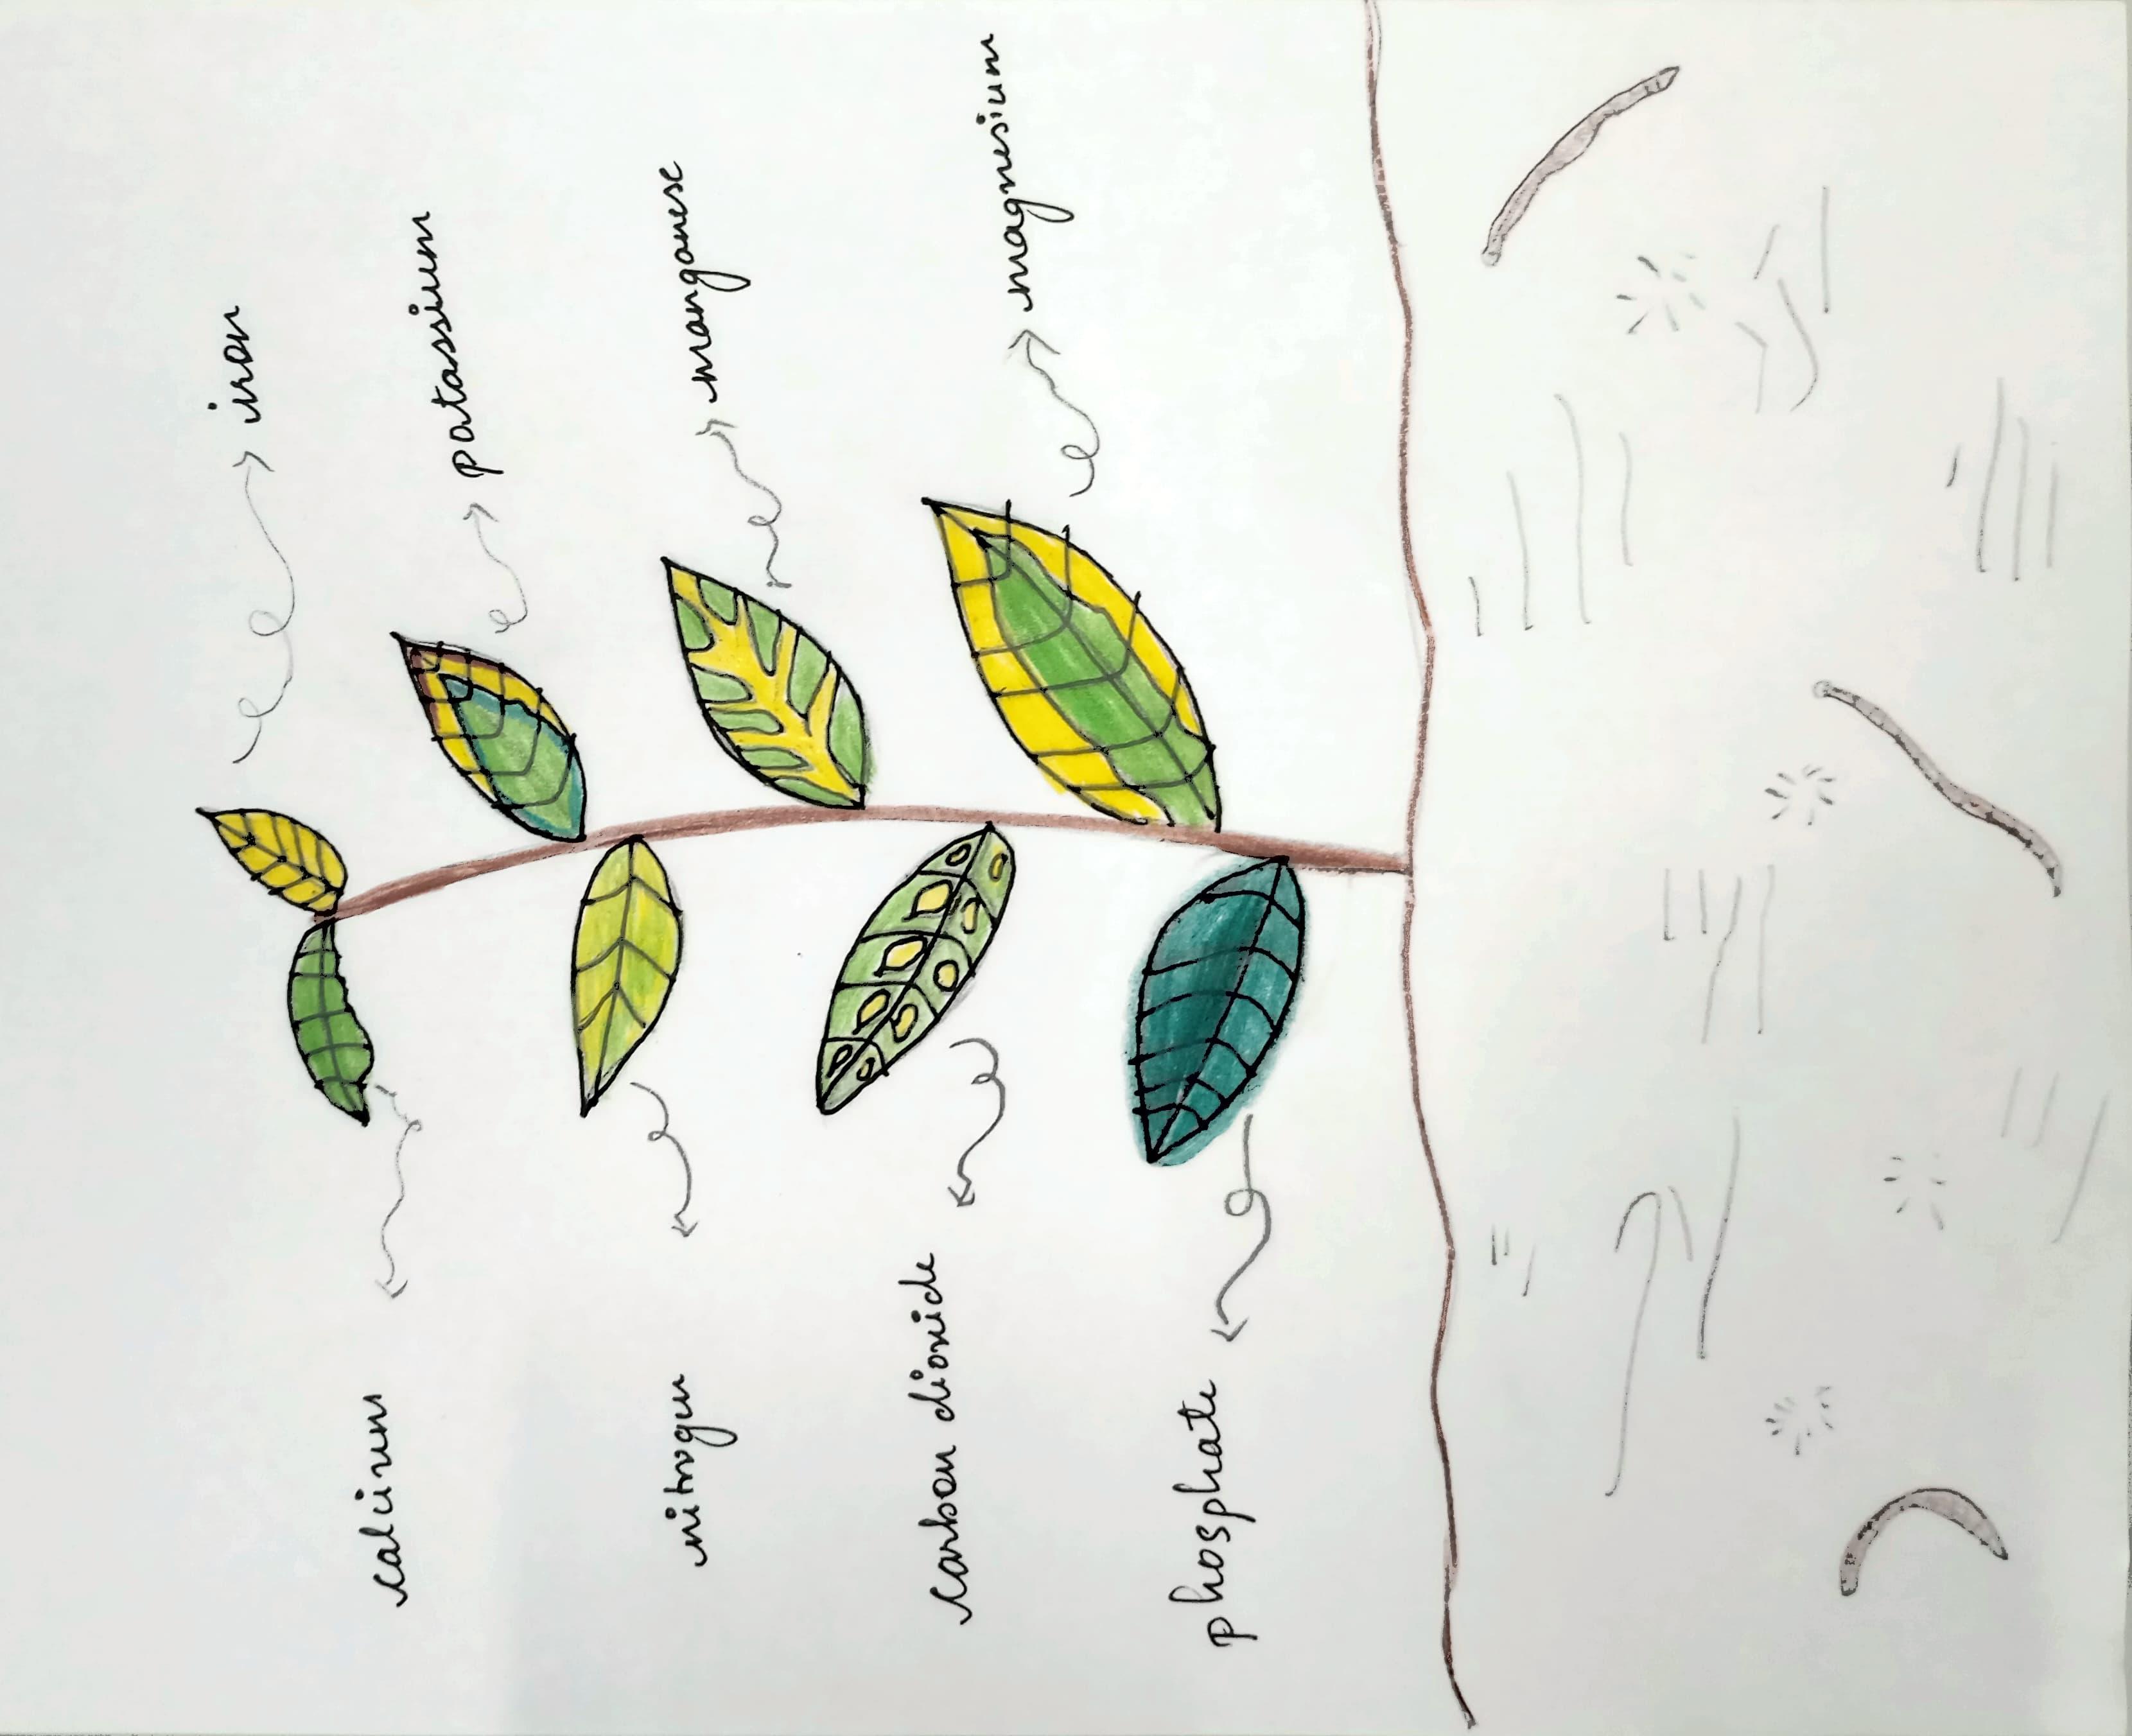 iron
calcium
potassium
nitrogen
manganese
carbon dioxide
magnesium
phosphate